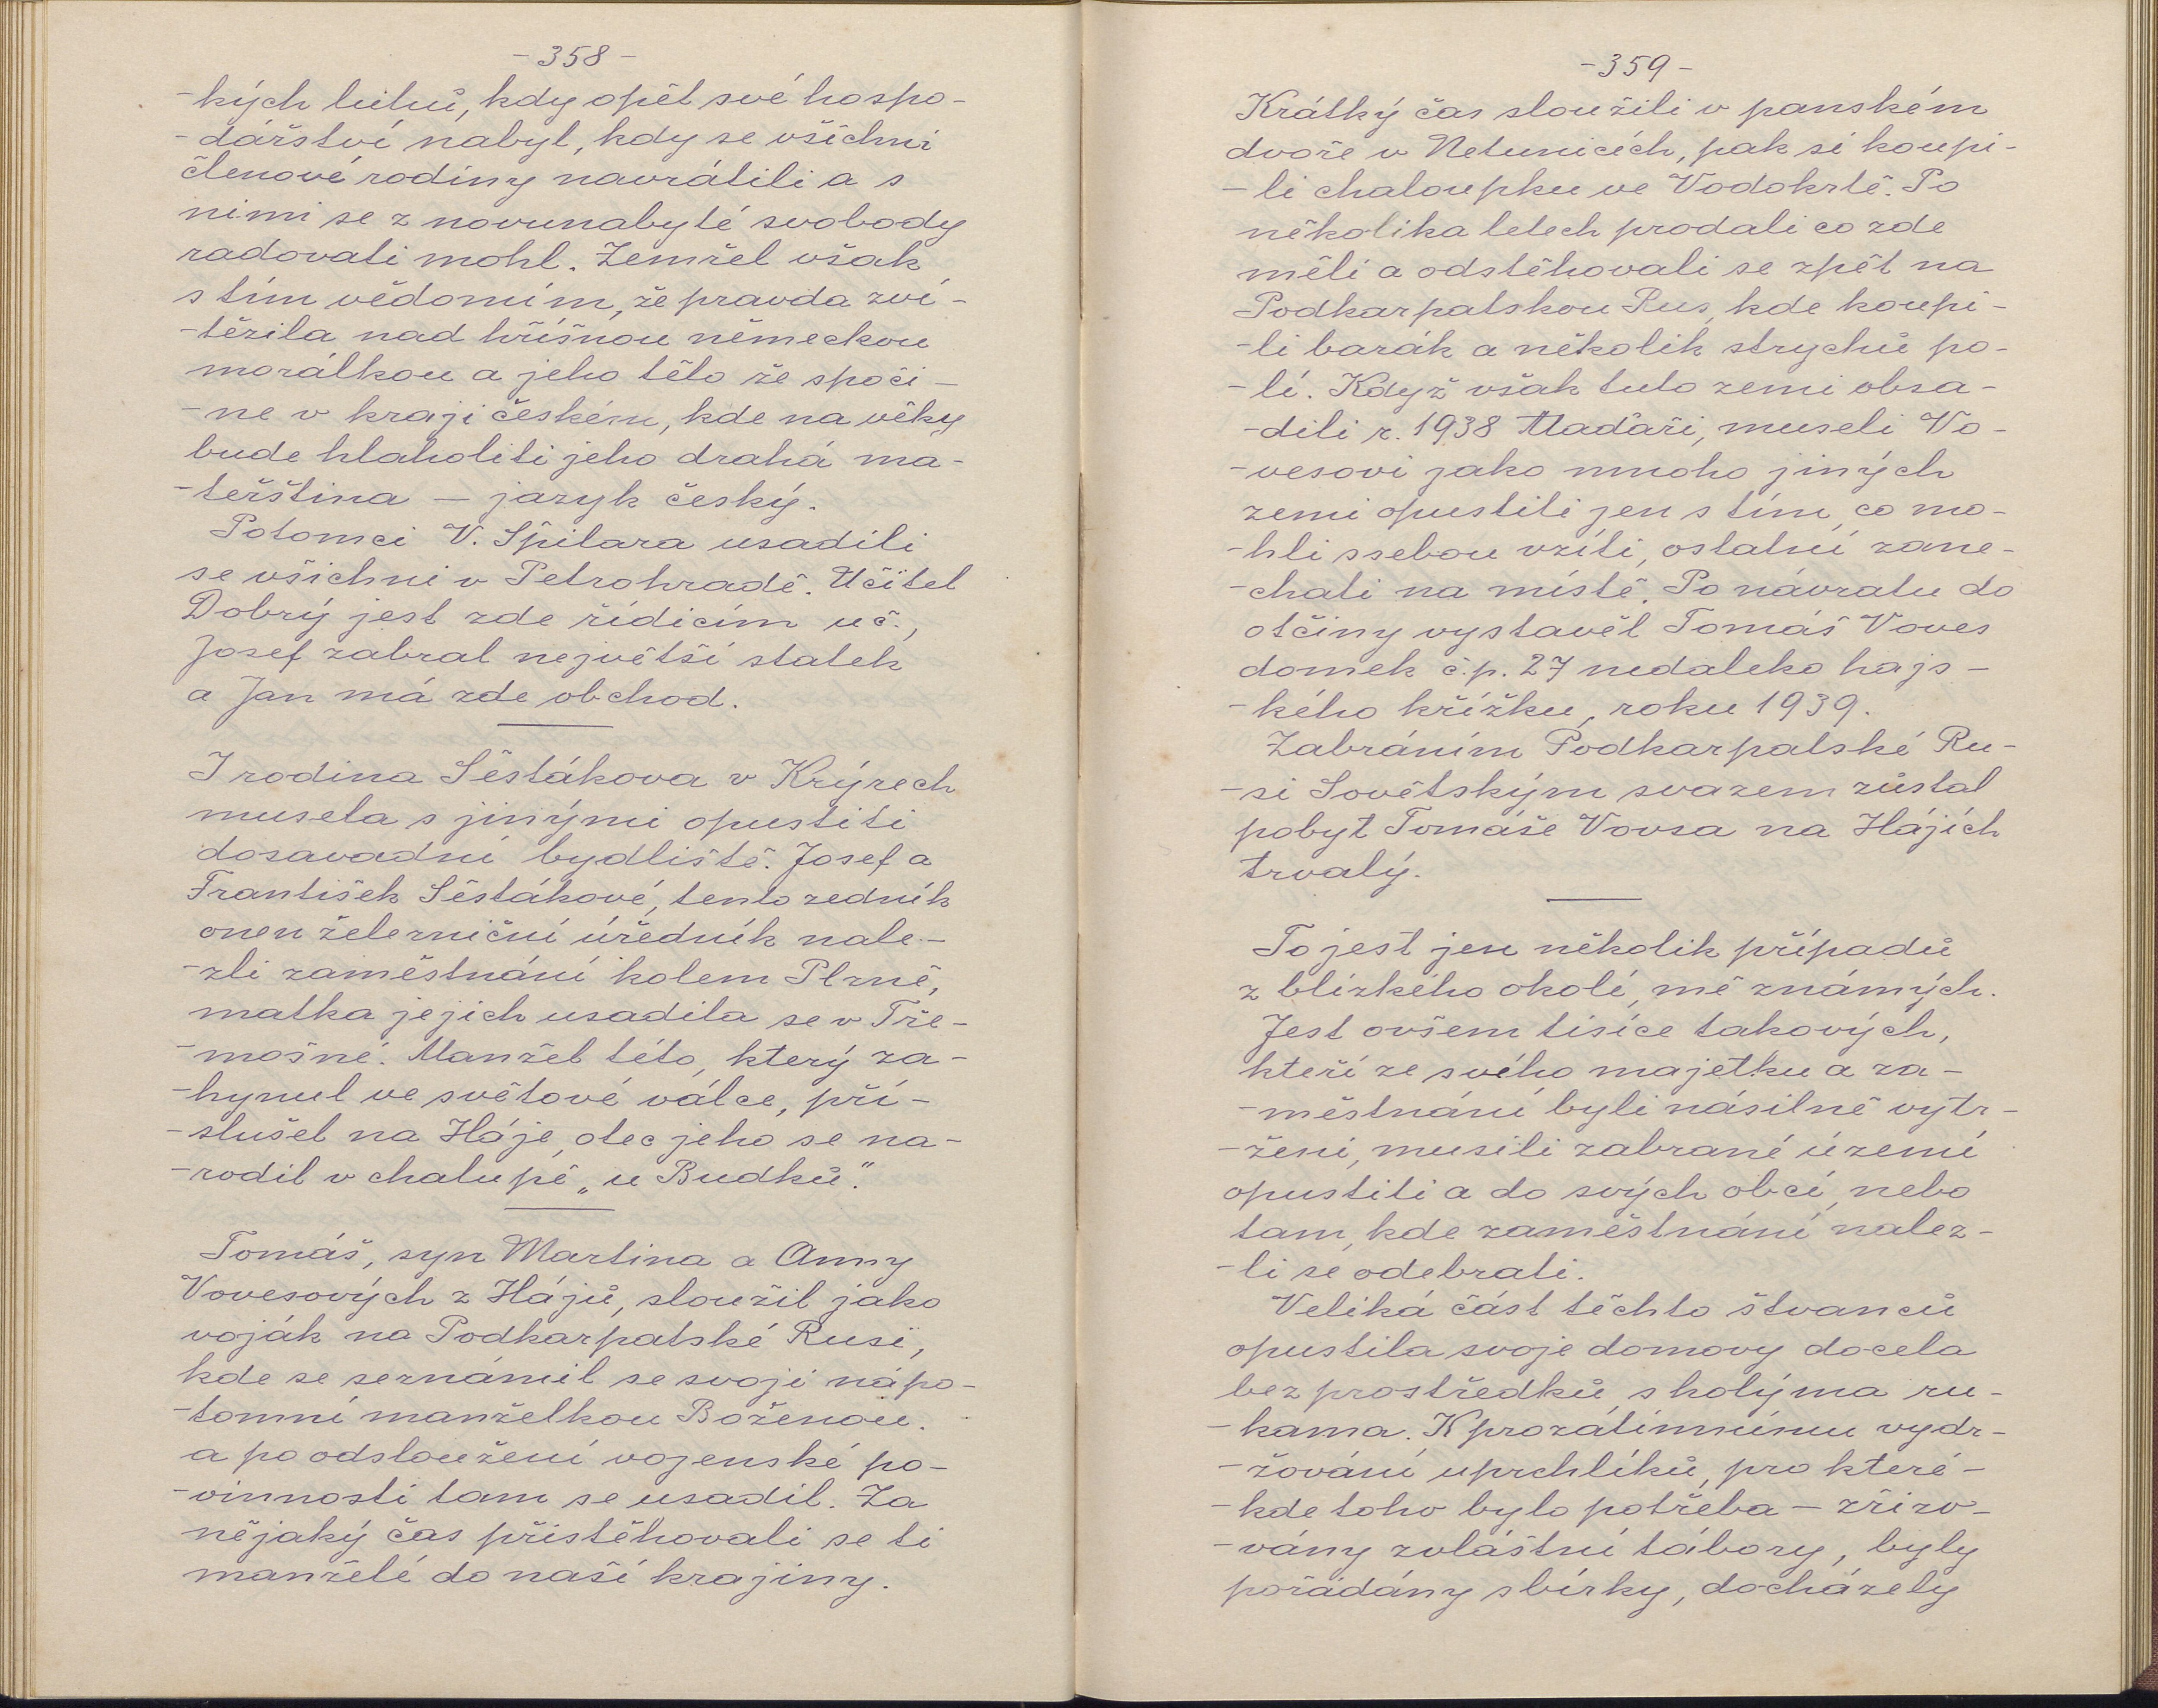 -358-
-kých luhů, kdy opět své hospo-
-dářství nabyl, kdy se všichni
členové rodiny navrátili a s
nimi se z novunabyté svobody
radovati mohl. Zemřel však
s tím vědomím, že pravda zví-
-těžila nad hříšnou německou
morálkou a jeho tělo že spoči-
-ne v kraji českém, kde na věky
bude hlaholiti jeho drahá ma-
-teřština — jazyk český.
Potomci V. Špilara usadili
se všichni v Petrohradě. Učitel
Dobrý jest zde řídícím uč.,
Josef zabral největší statek
a Jan má zde obchod.
I rodina Šestákova v Krýrech
musela s jinými opustiti
dosavadní bydliště. Josef a
František Šestákové, tento zedník
onen železniční úředník nale-
-zli zaměstnání kolem Plzně,
matka jejich usadila se v Tře-
-mošné. Manžel této, který za-
-hynul ve světové válce, pří-
-slušel na Háje, otec jeho se na-
-rodil v chalupě „u Budků".
Tomáš, syn Martina a Anny
Vovesových z Hájů, sloužil jako
voják na Podkarpatské Rusi,
kde se seznámil se svojí nápo-
-tomní manželkou Boženou.
a po odsloužení vojenské po-
-vinnosti tam se usadil. Za
nějaký čas přistěhovali se ti
manželé do naší krajiny.
-359-
Krátký čas sloužili v panském
dvoře v Netunicích, pak si koupi-
-li chaloupku ve Vodokrtě. Po
několika letech prodali co zde
měli a odstěhovali se zpět na
Podkarpatskou Rus, kde koupi-
-li barák a několik strychů po-
-lí. Když však tuto zemi obsa-
-dili r. 1938 Maďaři, museli Vo-
-vesovi jako mnoho jiných
zemi opustiti jen s tím, co mo-
-hli ssebou vzíti, ostatní zane-
-chali na místě. Po návratu do
otčiny vystavěl Tomáš Voves
domek č.p. 27 nedaleko hajs-
-kého křížku, roku 1939.
Zabráním Podkarpatské Ru-
-si Sovětským svazem zůstal
pobyt Tomáše Vovsa na Hájích
trvalý.
To jest jen několik případů
z blízkého okolí, mě známých.
Jest ovšem tisíce takových,
kteří ze svého majetku a za-
-městnání byli násilně vytr-
-ženi, musili zabrané území
opustiti a do svých obcí, nebo
tam, kde zaměstnání nalez-
-li se odebrati.
Veliká část těchto štvanců
opustila svoje domovy docela
bez prostředků, s holýma ru-
-kama. K prozatimnímu vydr-
-žování uprchlíků, pro které-
-kde toho bylo potřeba — zřizo-
-vány zvláštní tábory, byly
pořádány sbírky, docházely